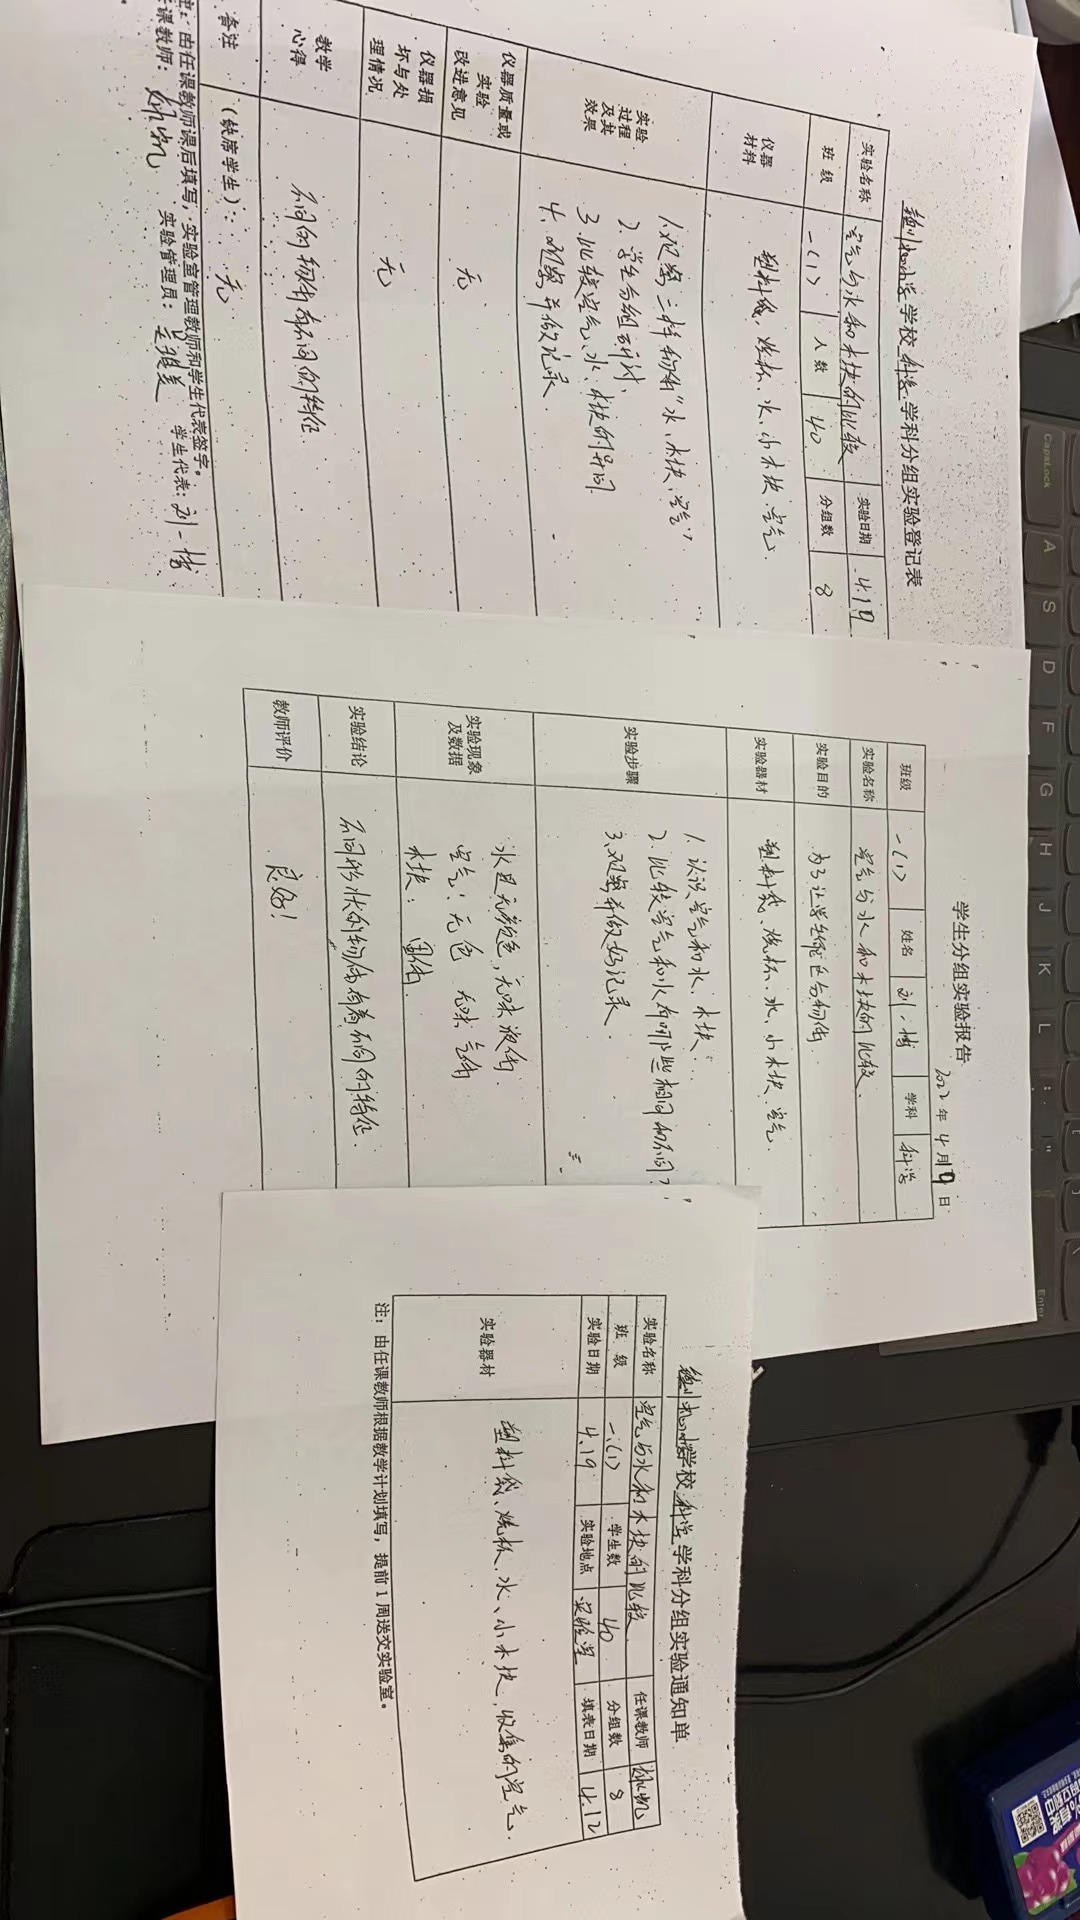 小学学校 科学 学科分组实验登记表
实验名称 空气与水和木块的比较 实验日期 4.19
班级 一(1) 人数 40 分组数 8
仪器材料 塑料袋、烧杯、水、小木块、空气
实验过程及其效果
1.观察三样物体"水、木块、空气"
2.学生分组讨论
3.比较空气、水、木块的异同
4.观察并做记录
仪器质量或实验改进意见 无
仪器损坏与处理情况 无
教学心得 不同的物体有不同的特征
备注 (缺席学生): 无
注: 由任课教师课后填写, 实验室管理教师和学生代表签字。
任课教师: 实验管理员: 学生代表: 刘一博
学生分组实验报告
2022 年 4 月 19 日
班级 一(1) 姓名 刘一博 学科 科学
实验名称 空气与水和木块的比较
实验目的 为了让学生能区分物体
实验器材 塑料袋、烧杯、水、小木块、空气
实验步骤
1.认识空气和水、木块
2.比较空气和水有哪些相同和不同?
3.观察并做好记录
实验现象及数据
水是无颜色,无味液体
空气:无色 无味 气体
木块:固体
实验结论 不同形状的物体有着不同的特征
教师评价 良好!
小学学校 科学 学科分组实验通知单
实验名称 空气与水和木块的比较 任课教师
班级 一(1) 学生数 40 分组数 8
实验日期 4.19 实验地点 实验室 填表日期 4.12
实验器材 塑料袋、烧杯、水、小木块、收集的空气
注: 由任课教师根据教学计划填写, 提前1周送交实验室。
CapsLock
A
S
D
F
G
H
J
K
L
Enter